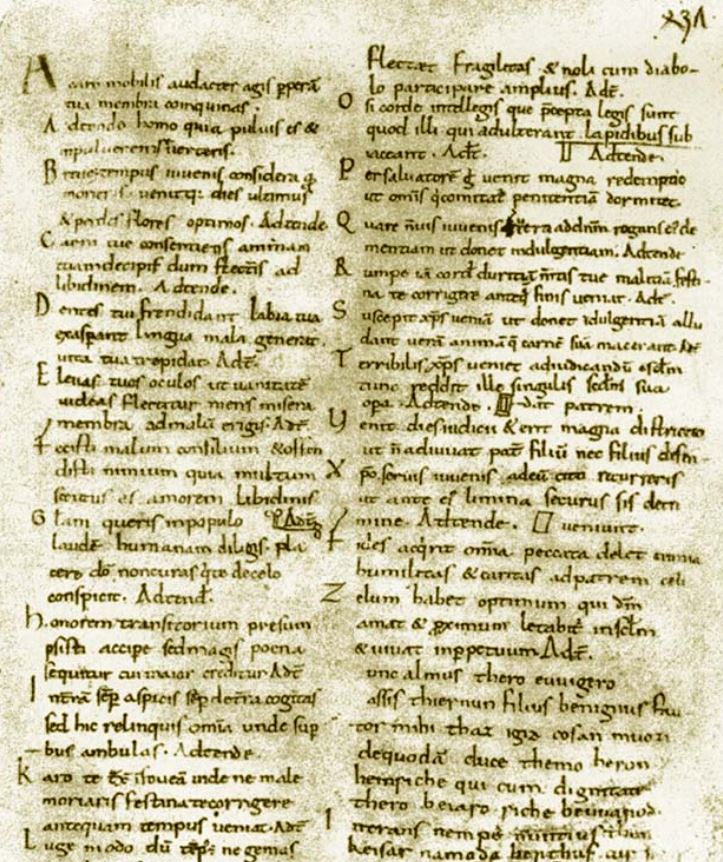 A
caro mobilis audacter agis pperā
tua membra coinquinas.
A dtendo homo quia puluis es &
inpuluerem reuerteris.
B reue tempus iuuenis considera q̄
moneris uenitq; dies ultimus
& perdes flores optimos. Adtende
C arni tue consentiens animam
tuam decipis dum flectis ad
libidinem. Adtende.
D entes tui frendidant labia tua
exasperant lingua mala generat.
uita tua trepidat. Adt̄.
E leuas tuos oculos ut uanitatē
uideas flectitur mens misera
membra admalū erigis. Adt̄.
F ecisti malum consilium & often
disti nimium quia multum
secutus es amorem libidinis
G lam queris inpopulo
laudē humanam diligis. pla
cere dō non curas qui de celo
conspicit. Adtend̄.
H onorem transitorium presum
psisti accipe sed magis poena
sequitur cui maior creditur Adt̄
I n terā sēp aspicis sēp de terra cogitas
sed hic relinquis omīa unde sup
bus ambulas. Adtende.
K aro te unde ne male
moriaris festina te corrigere
antequam tempus ueniat. Adt̄
L uge modo dū tēp; ne gemas
flectet fragilitas & noli cum diabo-
lo participare amplius. Adt̄.
O si corde intellegis que p̄cepta legis sunt
quod illi qui adulterant lapidibus sub
iaceant. Adt̄. Adtende.
P er saluatorē uenit magna redemptio
ut omīs penitentiā dormitet.
Q uare iuuenis addn̄m rogans de
mentiam ut donet indulgentiam. Adtende
R umpe iā cordis duritiā tue malitiā festi-
na te corrigere anteq̄ finis ueniat. Adt̄.
S uscepit xp̄s ueniā ut donet idulgentiā allu
dant uerā animā q̄ carnē suā macerant. Adt̄
T erribilis xp̄s ueniet adiudicandū sclm̄
tunc reddet ille singulis scdm̄ sua
opa. Adtende. patrem.
U eniet dies iudicii & erit magna districtio
ut n̄ adiuuat patˉ filiū nec filius defen-
X p̄o seruis iuuenis adeū cito recurreris
ut ante ei limina securus sis de cri
mine. Adtende. ueniunt.
Y des acq̄rit omīa peccata delet omnia
humilitas & caritas ad patrem celi
Z elum habet optimum qui dn̄m
amat & p̄ximum letabit̄ inscl̄m
& uiuat inppetuum Adt̄.
unc almus thero euuigero
assis thiernun filius benignus fau
tor mihi thaz ig cosan muozi
de quodā duce themo heron
heinriche qui cum dignitate
thero beiaro riche beuuarod.
I ntrans nempe nuntius
keisar namoda